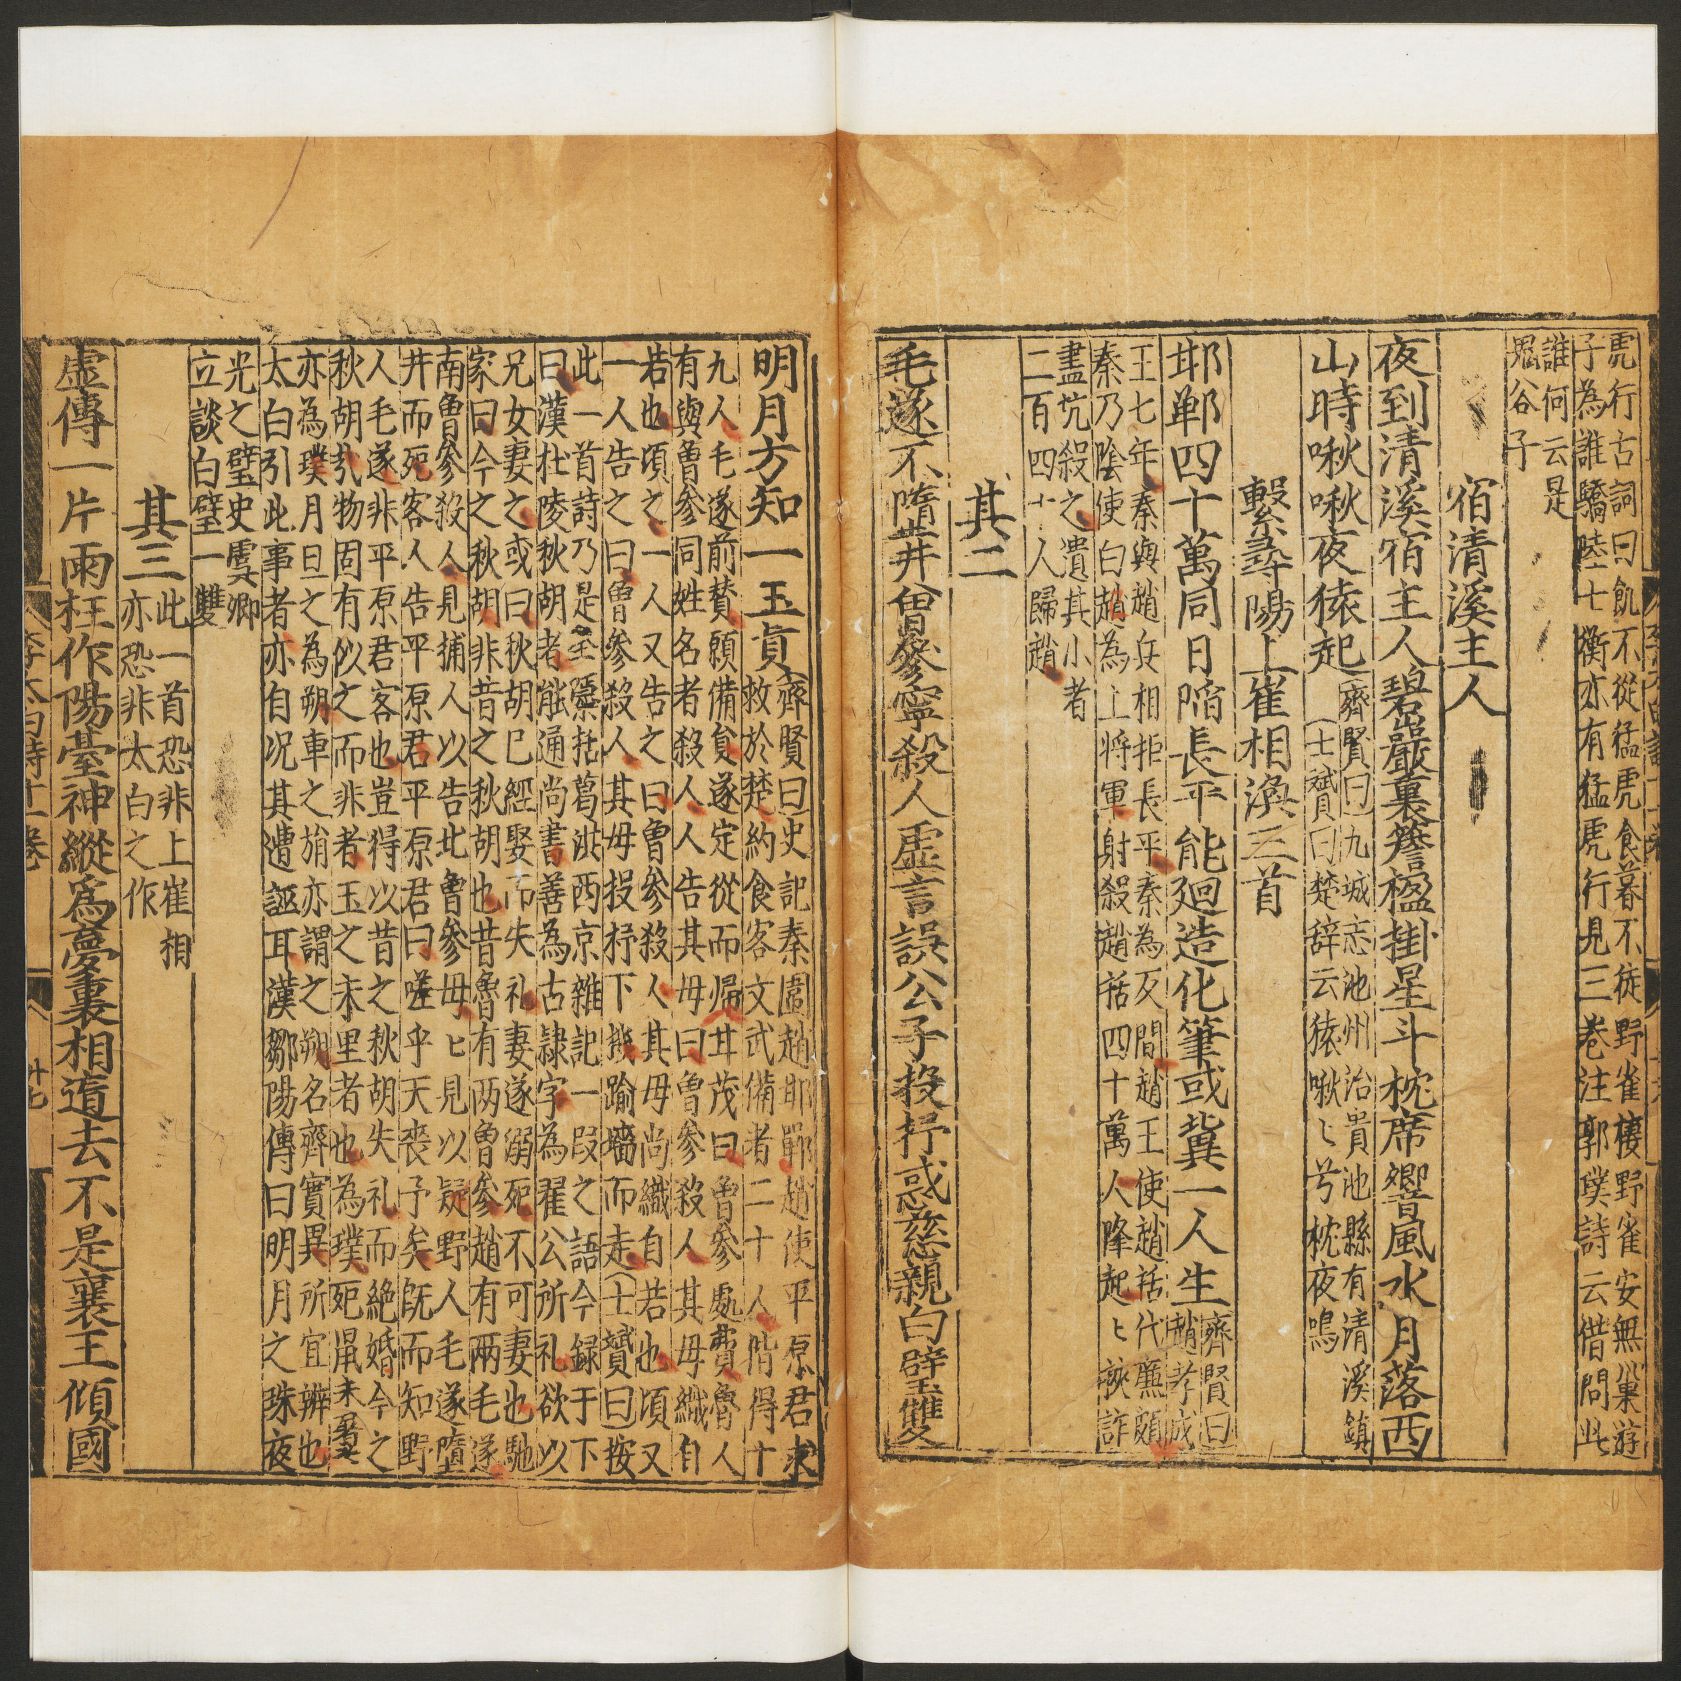 虎行古詞曰飢不從猛虎食暮不從野雀棲野雀安無巢游
子為誰驕陸士衡亦有猛虎行見三卷注郭璞詩云借問此
誰何云是
鬼谷子
宿清溪主人
夜到清溪宿主人碧巖裏簷楹掛星斗枕席響風水月落西
山時啾啾夜猿起
齊賢曰九域志池州治貴池縣有清溪鎮
士贇曰楚辞云猿啾〻兮枕夜鳴
繫尋陽上崔相渙三首
邯鄲四十萬同日陷長平能廻造化筆或冀一人生
齊賢曰
趙孝成
王七年秦與趙兵相拒長平秦為反間趙王使趙括代廉頗
秦乃陰使白起為上將軍射殺趙括四十萬人降起〻挾詐
盡坑殺之遺其小者
二百四十人歸趙
其二
毛遂不墮井曾參寧殺人虛言誤公子投杼惑慈親白璧雙
明月方知一玉真
齊賢曰史記秦圍趙邯鄲趙使平原君求
救於楚約食客文武備者二十人偕得十
九人毛遂前贊願備貟遂定從而歸甘茂曰曾參處費魯人
有與曾參同姓名者殺人人告其母曰曾參殺人其母織自
若也頃之一人又告之曰曾參殺人其母尚織自若也頃又
一人告之曰曾參殺人其母投杼下機踰墻而走士贇曰按
此一首詩乃是全隱括葛洪西京雜記一段之語今録于下
曰漢杜陵秋胡者能通尚書善為古隷字為翟公所礼欲以
兄女妻之或曰秋胡已經娶而失礼妻遂溺死不可妻也馳
家曰今之秋胡非昔之秋胡也昔魯有两曾參趙有两毛遂
南曾參殺人見捕人以告北曾參母〻見以疑野人毛遂墮
井而死客人告平原君平原君曰嗟乎天喪予矣既而知野
人毛遂非平原君客也豈得以昔之秋胡失礼而絶婚今之
秋胡㢤物固有似之而非者玉之未里者也為璞死鼠未屠
亦為璞月旦之為朔車之旃亦謂之朔名齊實異所宜辨也
太白引此事者亦自况其遭誣耳漢鄒陽傳曰明月之珠夜
光之璧史虞卿
立談白璧一雙
其三
此一首恐非上崔相
亦恐非太白之作
虛傳一片雨枉作陽臺神縱爲夢裏相隨去不是襄王傾國
李太白詩十一卷
八
廿七